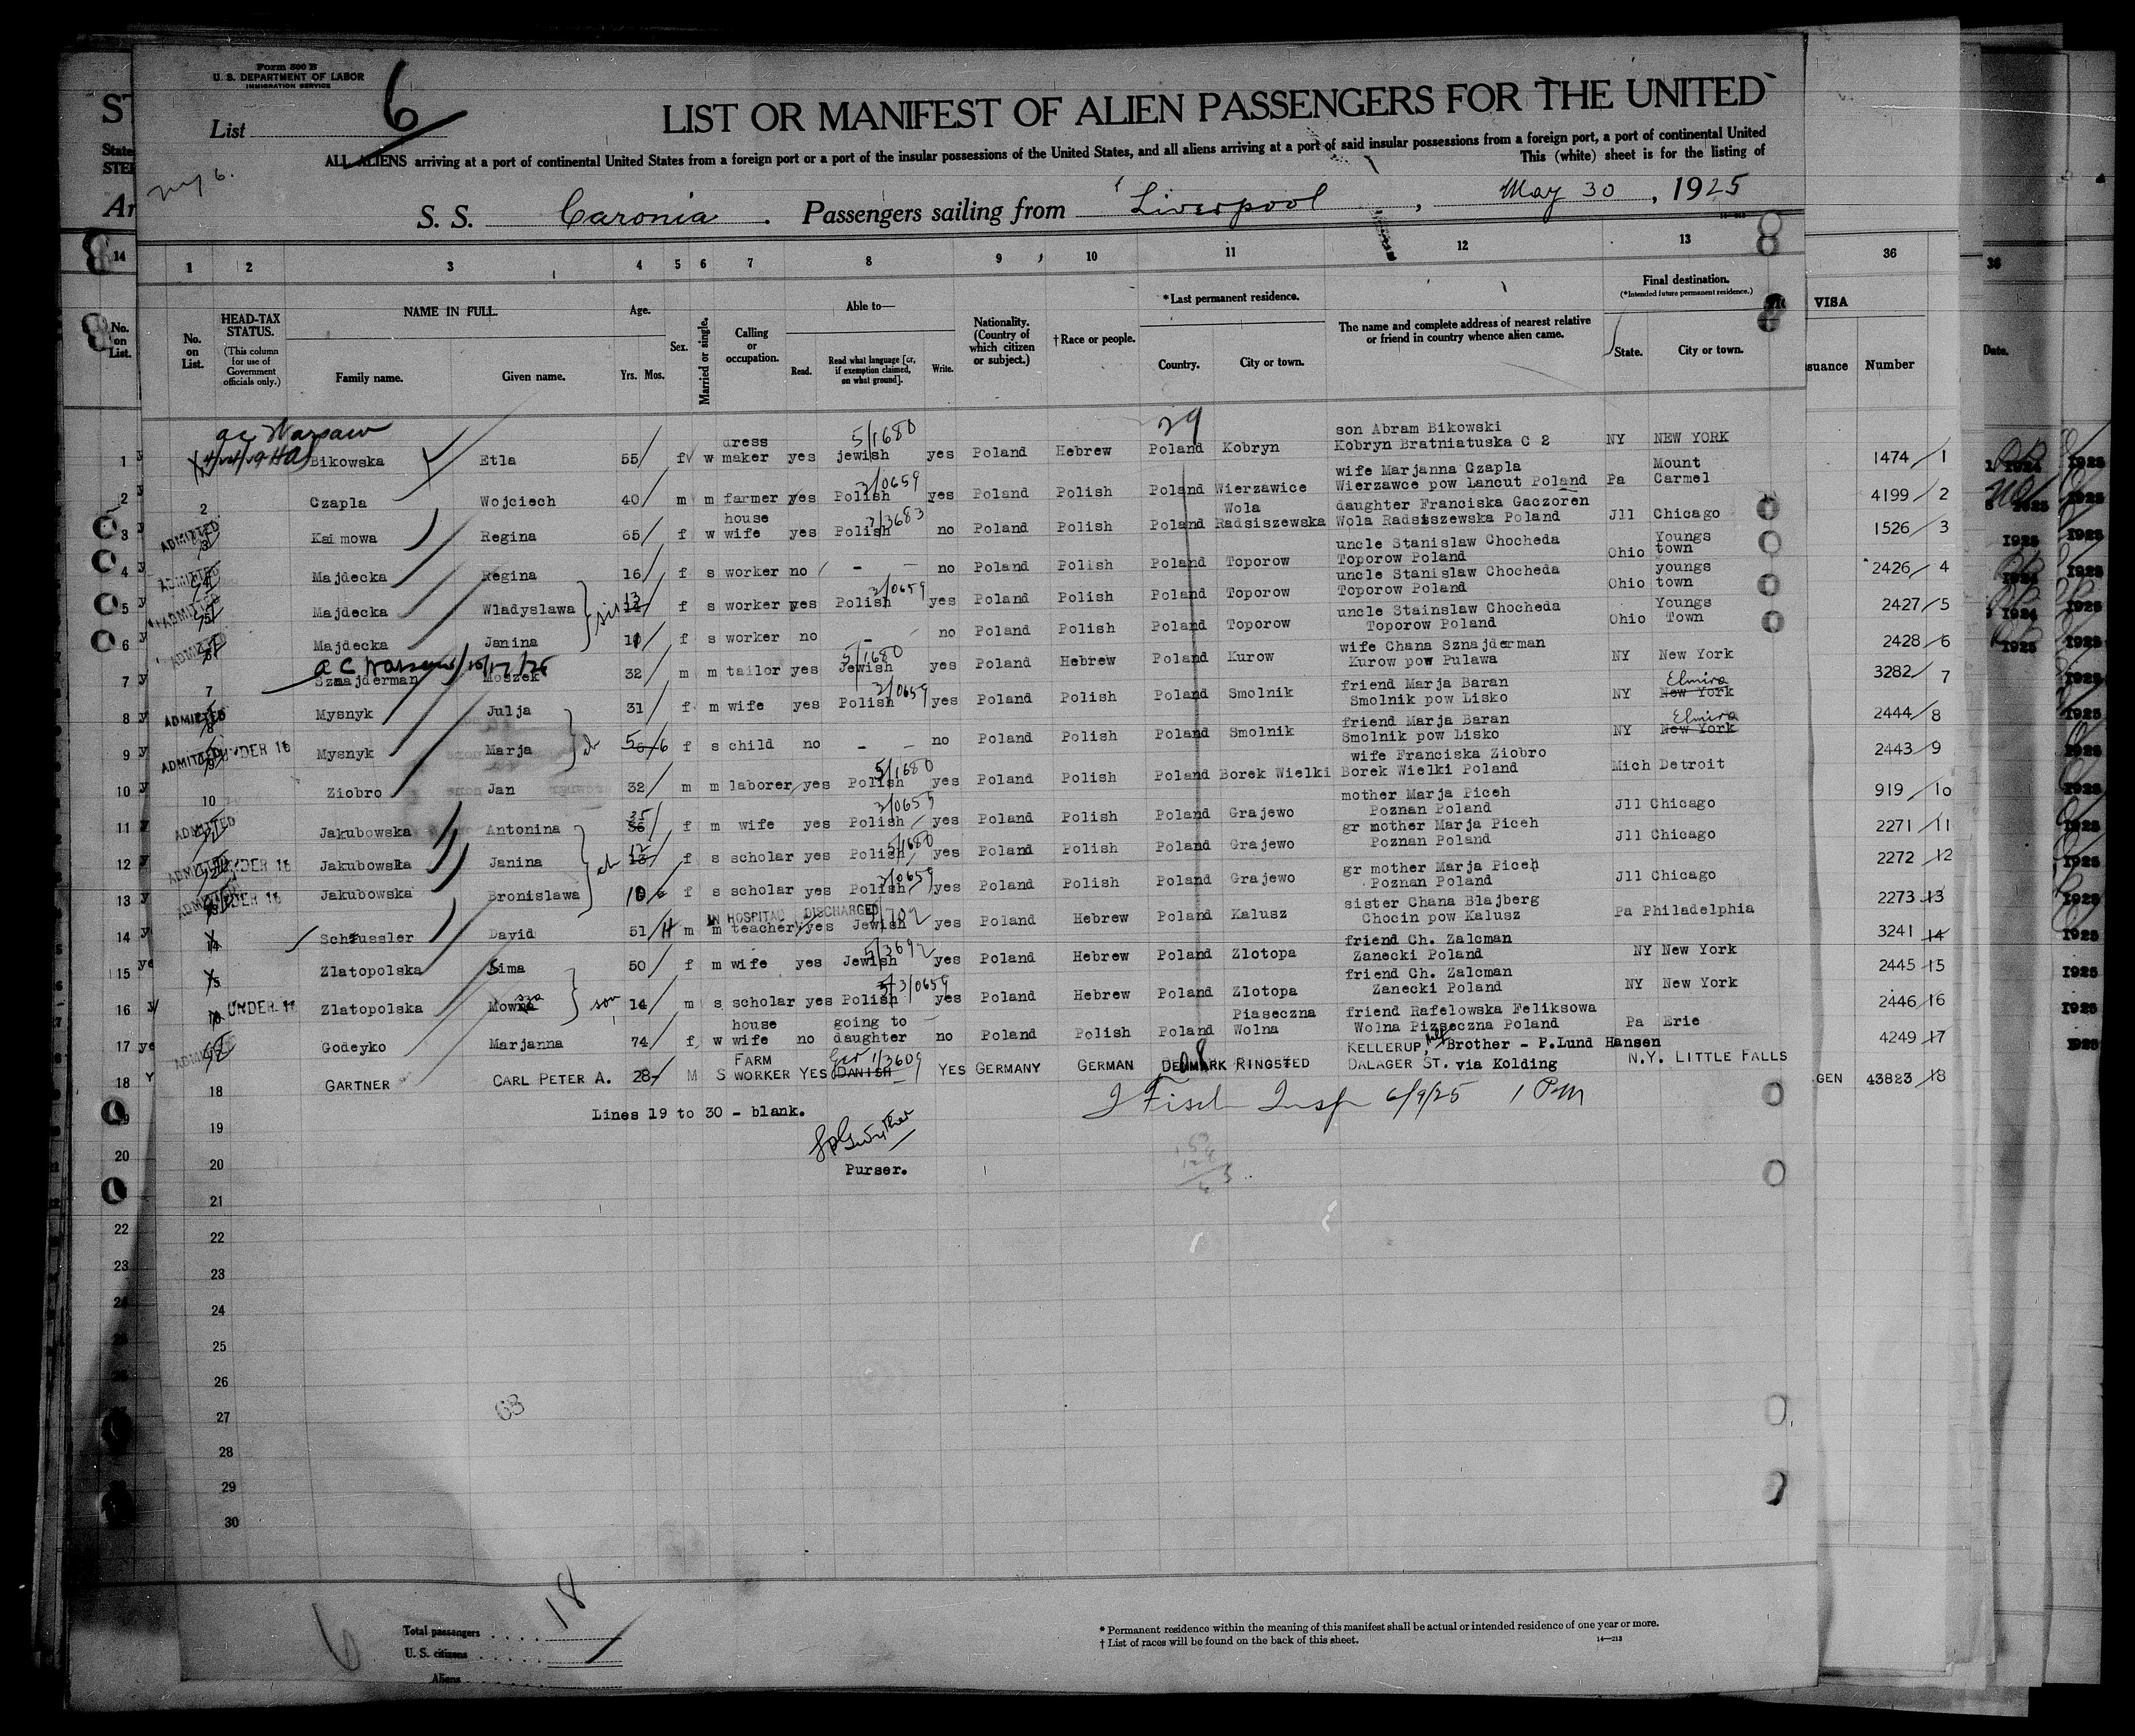 Form 500 B
U. S. DEPARTMENT OF LABOR
IMMIGRATION SERVICE
List 6
LIST OR MANIFEST OF ALIEN PASSENGERS FOR THE UNITED
ALL ALIENS arriving at a port of continental United States from a foreign port or a port of the insular possessions of the United States, and all aliens arriving at a port of said insular possessions from a foreign port, a port of continental United
This (white) sheet is for the listing of
S. S. Caronia. Passengers sailing from Liverpool, May 30, 1925
1 2 3 4 5 6 7 8 9 10 11 12 13 36
No. on List.
HEAD-TAX STATUS. (This column for use of Government officials only.)
NAME IN FULL. Family name. Given name.
Age. Yrs. Mos.
Sex.
Married or single.
Calling or occupation.
Able to— Read. Read what language [or, if exemption claimed, on what ground]. Write.
Nationality. (Country of which citizen or subject.)
†Race or people.
*Last permanent residence. Country. City or town.
The name and complete address of nearest relative or friend in country whence alien came.
Final destination. (*Intended future permanent residence.) State. City or town.
VISA Number
ac Warsaw 5/1680 29
1 Bikowska Etla 55 f w dress maker yes jewish yes Poland Hebrew Poland Kobryn son Abram Bikowski Kobryn Bratniatuska C 2 NY NEW YORK 1474 1
2 Czapla Wojciech 40 m m farmer yes Polish yes Poland Polish Poland Wierzawice wife Marjanna Czapla Wierzawce pow Lancut Poland Pa Mount Carmel 4199 2
ADMITTED 3 Kaimowa Regina 65 f w house wife yes Polish no Poland Polish Poland Wola Radsiszewska daughter Franciska Gaczoren Wola Radsiszewska Poland Jll Chicago 1526 3
ADMITTED 4 Majdecka Regina 16 f s worker no - - no Poland Polish Poland Toporow uncle Stanislaw Chocheda Toporow Poland Ohio Youngs town 2426 4
ADMITTED 5 Majdecka Wladyslawa 13 f s worker yes Polish yes Poland Polish Poland Toporow uncle Stanislaw Chocheda Toporow Poland Ohio youngs town 2427 5
ADMITTED 6 Majdecka Janina 11 f s worker no - - no Poland Polish Poland Toporow uncle Stainslaw Chocheda Toporow Poland Ohio Youngs Town 2428 6
ac Warsaw
7 Sznajderman Moszek 32 m m tailor yes Jewish yes Poland Hebrew Poland Kurow wife Chana Sznajderman Kurow pow Pulawa NY New York 3282 7
ADMITTED 8 Mysnyk Julja 31 f m wife yes Polish yes Poland Polish Poland Smolnik friend Marja Baran Smolnik pow Lisko NY New York Elmira 2444 8
ADMITTED UNDER 16 9 Mysnyk Marja 5 6 f s child no - - no Poland Polish Poland Smolnik friend Marja Baran Smolnik pow Lisko NY New York Elmira 2443 9
10 Ziobro Jan 32 m m laborer yes Polish yes Poland Polish Poland Borek Wielki wife Franciska Ziobro Borek Wielki Poland Mich Detroit 919 10
ADMITTED 11 Jakubowska Antonina 35 f m wife yes Polish yes Poland Polish Poland Grajewo mother Marja Piceh Poznan Poland Jll Chicago 2271 11
ADMITTED UNDER 16 12 Jakubowska Janina 12 f s scholar yes Polish yes Poland Polish Poland Grajewo gr mother Marja Piceh Poznan Poland Jll Chicago 2272 12
ADMITTED UNDER 16 13 Jakubowska Bronislawa 10 6 f s scholar yes Polish yes Poland Polish Poland Grajewo gr mother Marja Piceh Poznan Poland Jll Chicago 2273 13
IN HOSPITAL DISCHARGED
14 Schussler David 51 m m teacher yes Jewish yes Poland Hebrew Poland Kalusz sister Chana Blajberg Chocin pow Kalusz Pa Philadelphia 3241 14
15 Zlatopolska Sima 50 f m wife yes Jewish yes Poland Hebrew Poland Zlotopa friend Ch. Zalcman Zanecki Poland NY New York 2445 15
UNDER 16 16 Zlatopolska Mowsza son 14 m s scholar yes Polish yes Poland Hebrew Poland Zlotopa friend Ch. Zalcman Zanecki Poland NY New York 2446 16
ADMITTED 17 Godeyko Marjanna 74 f w house wife no going to daughter no Poland Polish Poland Piaseczna Wolna friend Rafelowska Feliksowa Wolna Pizseczna Poland Pa Erie 4249 17
18 GARTNER CARL PETER A. 28 M S FARM WORKER YES DANISH Ger YES GERMANY GERMAN DENMARK RINGSTED half Brother - P.Lund Hansen KELLERUP, DALAGER ST. via Kolding N.Y. LITTLE FALLS GEN 43823 18
Lines 19 to 30 - blank.
6/9/25 1 PM
Purser.
19
20
21
22
23
24
25
26
27
28
29
30
63
6
Total passengers 18
U. S. citizens
Aliens
* Permanent residence within the meaning of this manifest shall be actual or intended residence of one year or more.
† List of races will be found on the back of this sheet.
14—213